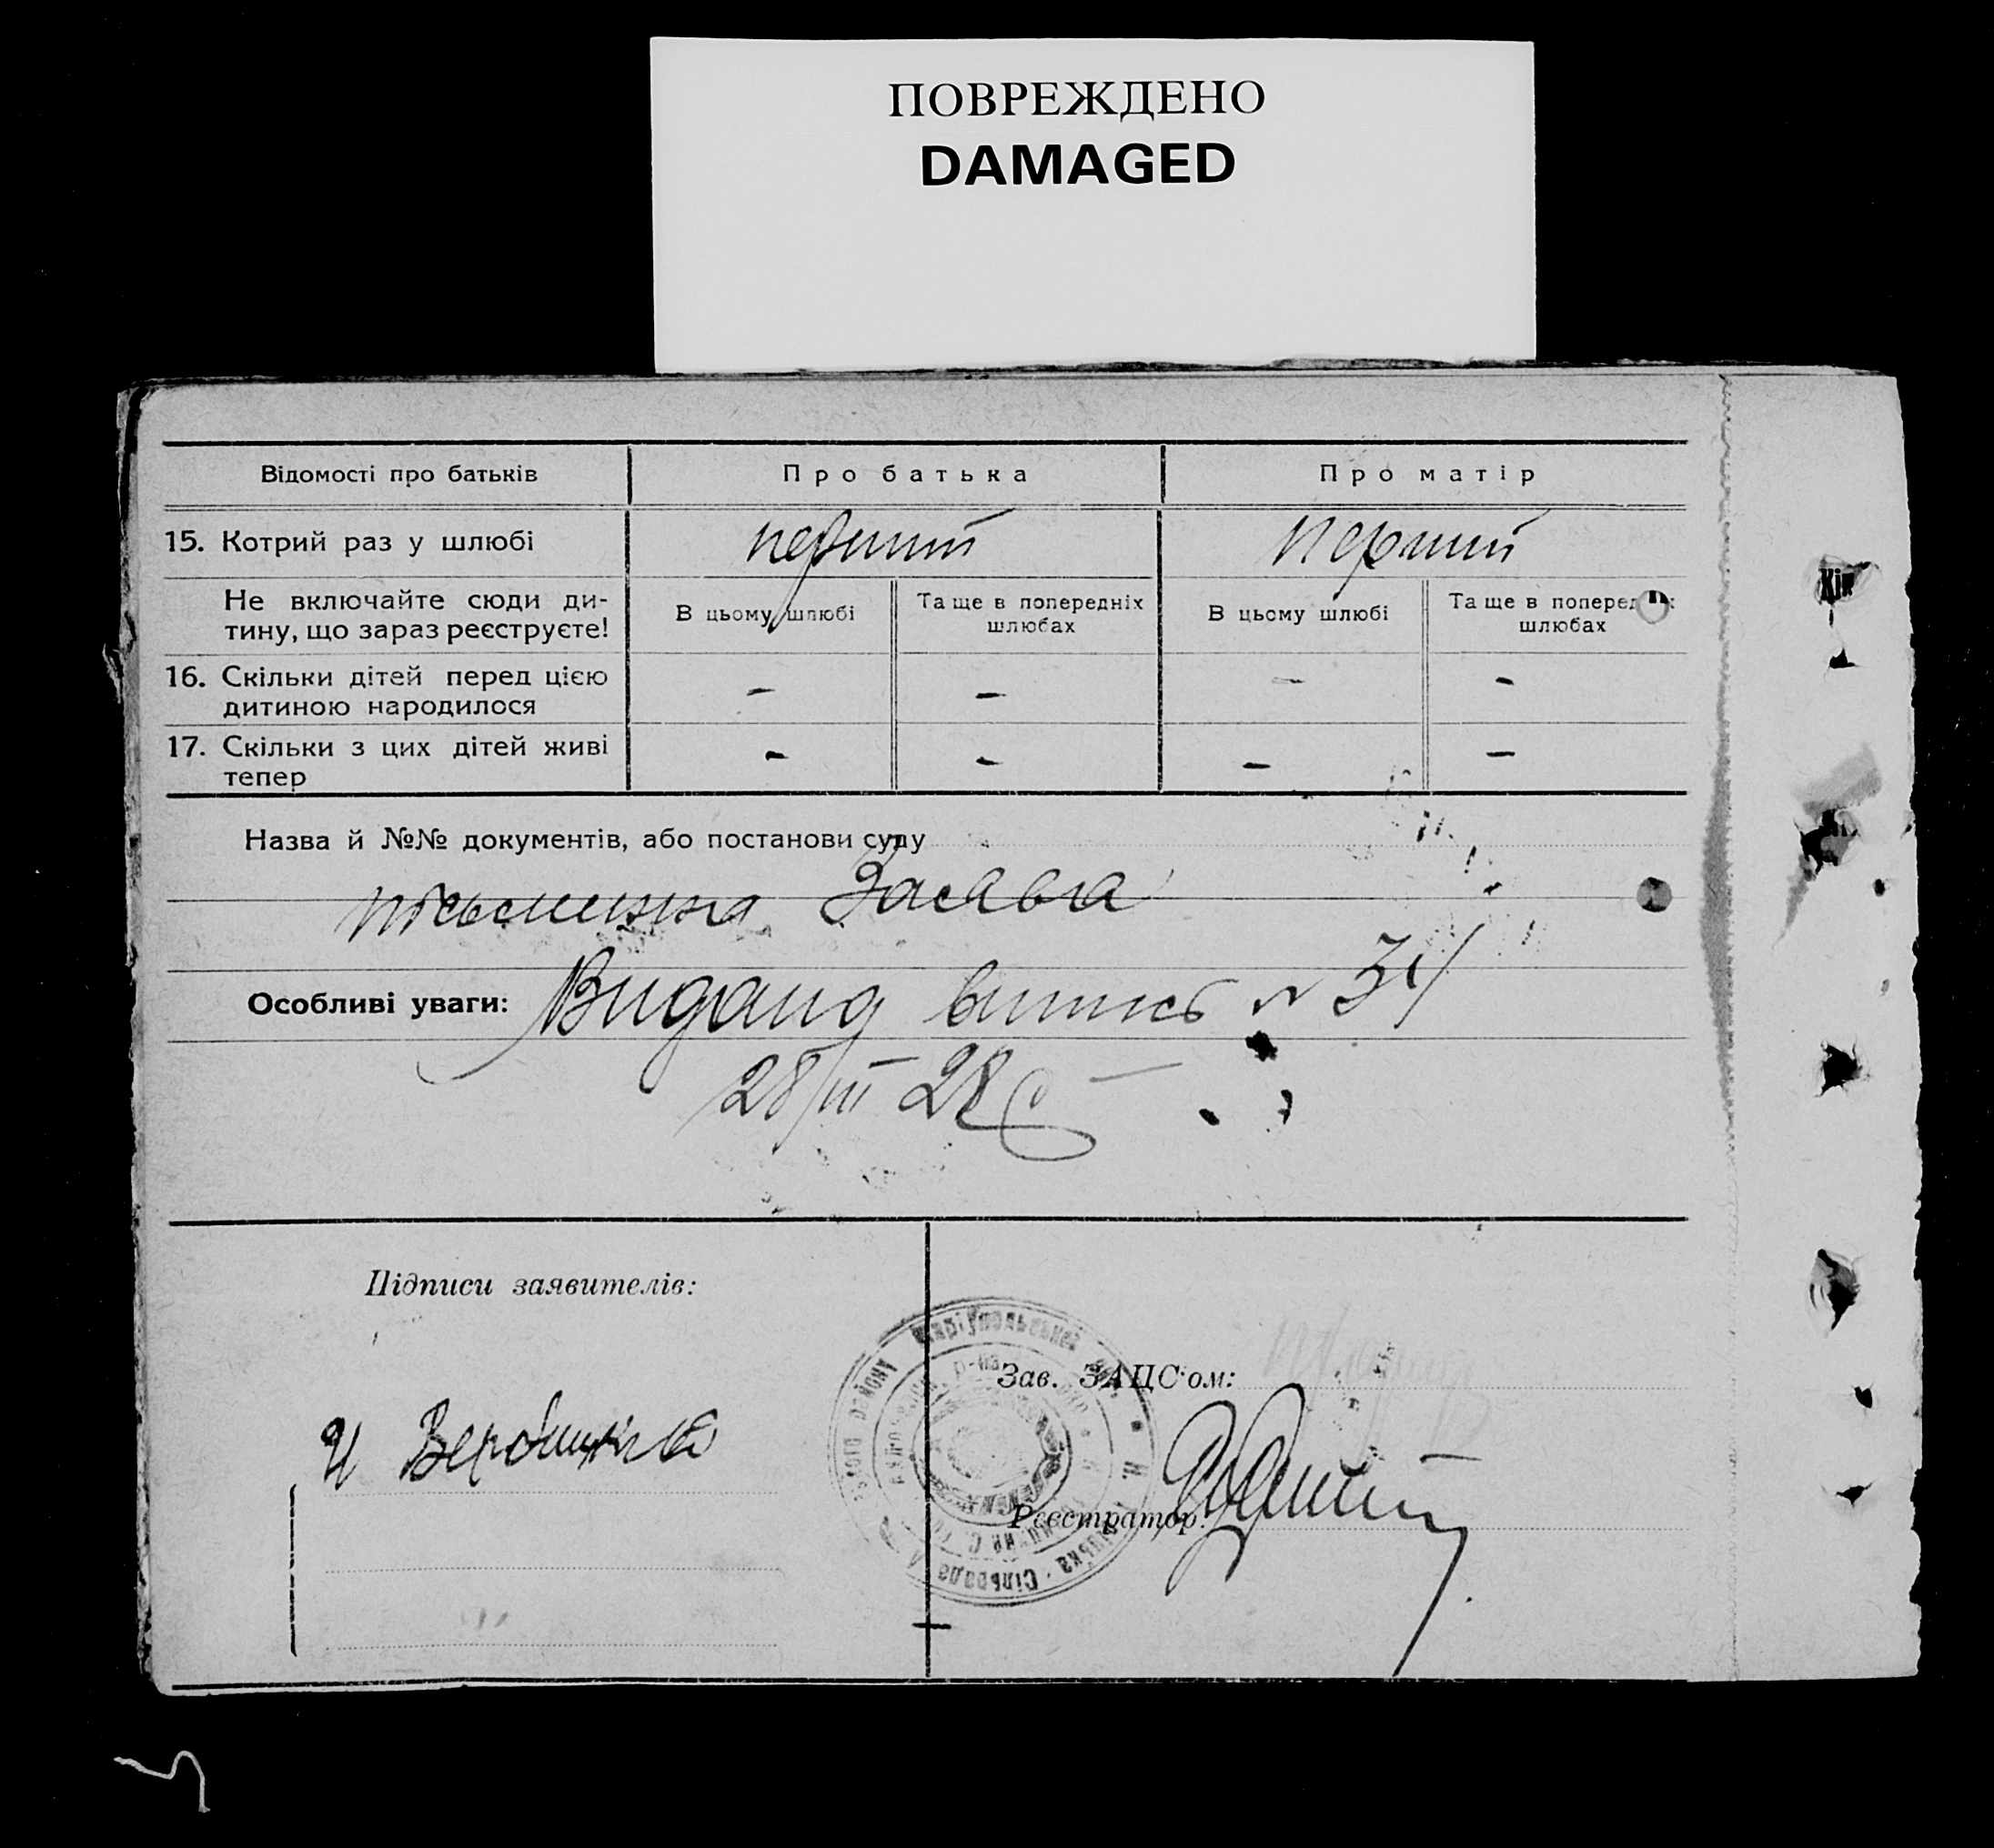 ПОВРЕЖДЕНО
DAMAGED
Відомості про батьків
Про батька
Про матір
15. Котрий раз у шлюбі
перший
перший
Не включайте сюди ди-
тину, що зараз реєструєте!
В цьому шлюбі
Та ще в попередніх
шлюбах
В цьому шлюбі
Та ще в попередніх
шлюбах
16. Скільки дітей перед цією
дитиною народилося
–
–
–
–
17. Скільки з цих дітей живі
тепер
–
–
–
–
Назва й №№ документів, або постанови суду
Заява
Особливі уваги: Видана випись № 31
28/III 28
Підписи заявителів:
Зав. ЗАЦС'ом:
Вербицкий
Реєстратор:
Маріупольської
району
Сільрада